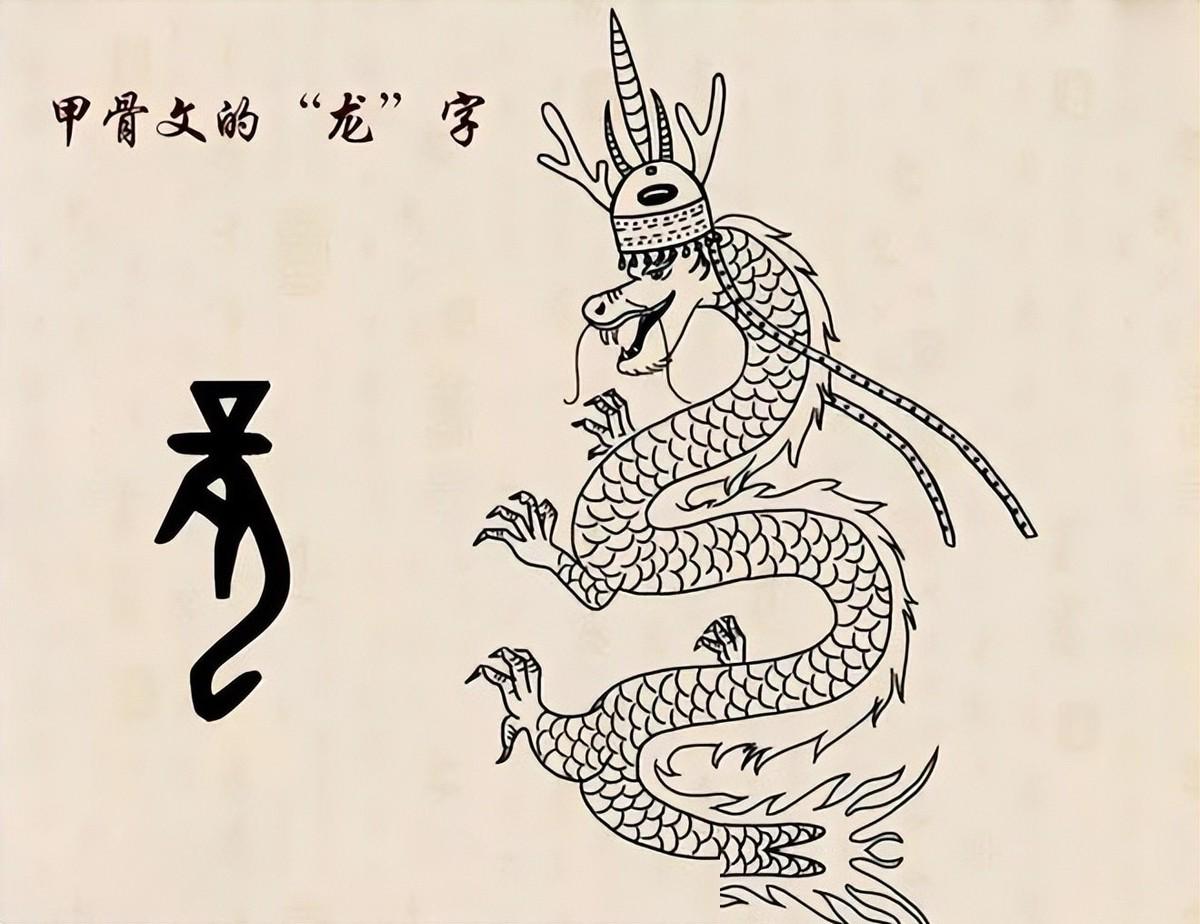 甲骨文的“龙”字